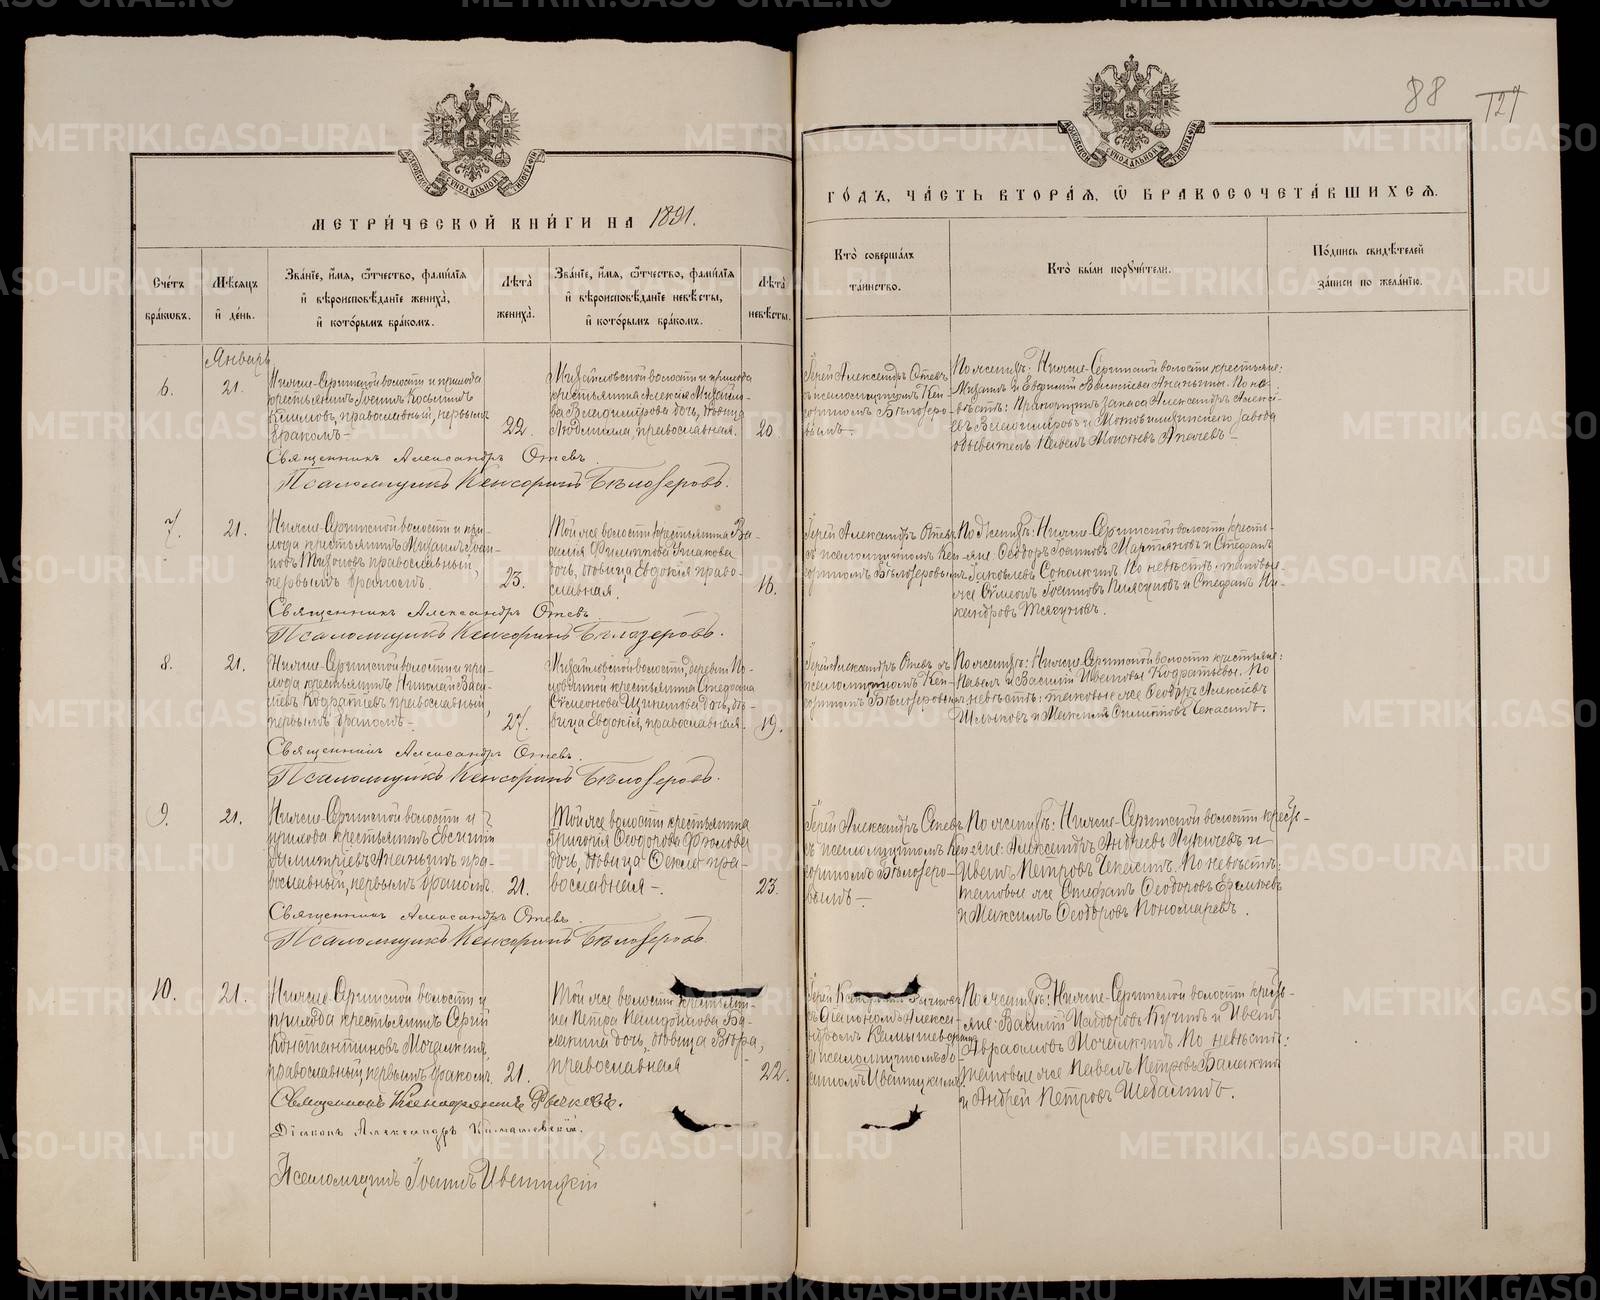 88
127
МОСКОВСКОЙ СѴНОДАЛЬНОЙ ТИПОГРАФІИ
МЕТРИ́ЧЕСКОЙ КНИ́ГИ НА 1891.
Сче́тъ бра́кωвъ.
Мѣ́сѧцъ й де́нь.
Зва́нїе, и́мѧ, ѻ҆́тчество, фами́лїѧ й вѣроисповѣ́данїе жениха̀, й кото́рымъ бра́комъ.
Лѣта̀ жениха̀.
Зва́нїе, и́мѧ, ѻ҆́тчество, фами́лїѧ й вѣроисповѣ́данїе невѣ́сты, й кото́рымъ бра́комъ.
Лѣта̀ невѣ́сты.
Январь
6.
21.
Нижне-Сергинской волости и прихода
крестьянинъ Іоаннъ Косьминъ
православный, первымъ
бракомъ
22.
Михайловской волости и прихода
крестьянина Алексія Михайло-
ва Владимірова дочь, дѣвица
Людмилла, православная.
20.
Священникъ Александръ Отевъ.
Псаломщикъ Кенсоринъ Бѣлозеровъ.
7.
21.
Нижне-Сергинской волости и при-
хода крестьянинъ Михаилъ Іоан-
новъ православный,
первымъ бракомъ.
23.
Той же волости крестьянина Ва-
силія Филиппова Ушакова
дочь, дѣвица Евдокія право-
славная.
16.
Священникъ Александръ Отевъ
Псаломщикъ Кенсоринъ Бѣлозеровъ.
8.
21.
Нижне-Сергинской волости и при-
хода крестьянинъ Николай Васи-
ліевъ Кодратіевъ православный,
первымъ бракомъ
27.
Михайловской волости, деревни
крестьянина Стефана
Сѵмеонова дочь, дѣ-
вица Евдокія, православная.
19.
Священникъ Александръ Отевъ.
Псаломщикъ Кенсоринъ Бѣлозеровъ.
9.
21.
Нижне-Сергинской волости и
прихода крестьянинъ Евгеній
Димитріевъ Ананьинъ пра-
вославный, первымъ бракомъ.
21.
Той же волости крестьянина
Григорія Ѳеодорова
дочь, дѣвица Ѳекла пра-
вославная.
23.
Священникъ Александръ Отевъ.
Псаломщикъ Кенсоринъ Бѣлозеровъ.
10.
21.
Нижне-Сергинской волости и
прихода крестьянинъ Сергій
Константиновъ Мочалкинъ,
православный, первымъ бракомъ.
21.
Той же волости крестьяни-
на Петра Памфилова Ба-
лакина дочь, дѣвица
православная
22.
Священникъ Рычковъ.
Діаконъ Александръ Камышевскій.
Псаломщикъ Іоаннъ Цвѣтицкій
ГО́ДЪ, ЧА́СТЬ ВТОРА́Ѧ, Ѡ҆ БРАКОСОЧЕТА́ВШИХСѦ.
Кто̀ соверша́лъ та́инство.
Кто̀ бы́ли порꙋчи́тели.
По́дпись свидѣ́телей за́писи по жела́нїю.
Іерей Александръ Отевъ
съ псаломщикомъ Кен-
сориномъ Бѣлозеро-
вымъ
По женихѣ: Нижне-Сергинской волости крестьяне:
Михаилъ и Евфимій Васильевы Ананьины. По не-
вѣстѣ: запаса Александръ Алексі-
евъ Владиміровъ и завода
обыватель Павелъ
Іерей Александръ Отевъ
съ псаломщикомъ Кен-
сориномъ Бѣлозеровымъ
По женихѣ: Нижне-Сергинской волости кресть-
яне: Ѳеодоръ Іоанновъ Мартьяновъ и Стефанъ
Іаковлевъ Соколкинъ. По невѣстѣ: таковые
же Сѵмеонъ Іоанновъ и Стефанъ Ни-
кандровъ
Іерей Александръ Отевъ съ
псаломщикомъ Кен-
сориномъ Бѣлозеровымъ
По женихѣ: Нижне-Сергинской волости крестьяне:
Павелъ и Василій Ивановы Кодратьевы. По
невѣстѣ: таковые же Ѳеодоръ Алексіевъ
и Максимъ Чекасинъ.
Іерей Александръ Отевъ
съ псаломщикомъ Кен-
сориномъ Бѣлозеро-
вымъ
По женихѣ: Нижне-Сергинской волости кресть-
яне: Александръ Андреевъ и
Иванъ Петровъ Чекасинъ. По невѣстѣ:
таковые же Стефанъ Ѳеодоровъ
и Максимъ Ѳеодоровъ Пономаревъ.
Іерей
съ діакономъ Алекса-
ндромъ Камышевскимъ
и псаломщикомъ Іо-
анномъ Цвѣтицкимъ.
По женихѣ: Нижне-Сергинской волости кресть-
яне: Василій Исидоровъ Кучинъ и Иванъ
Авраамовъ Мочалкинъ. По невѣстѣ:
таковые же Павелъ Петровъ Балакинъ
и Андрей Петровъ Шебалинъ.
METRIKI.GASO-URAL.RU